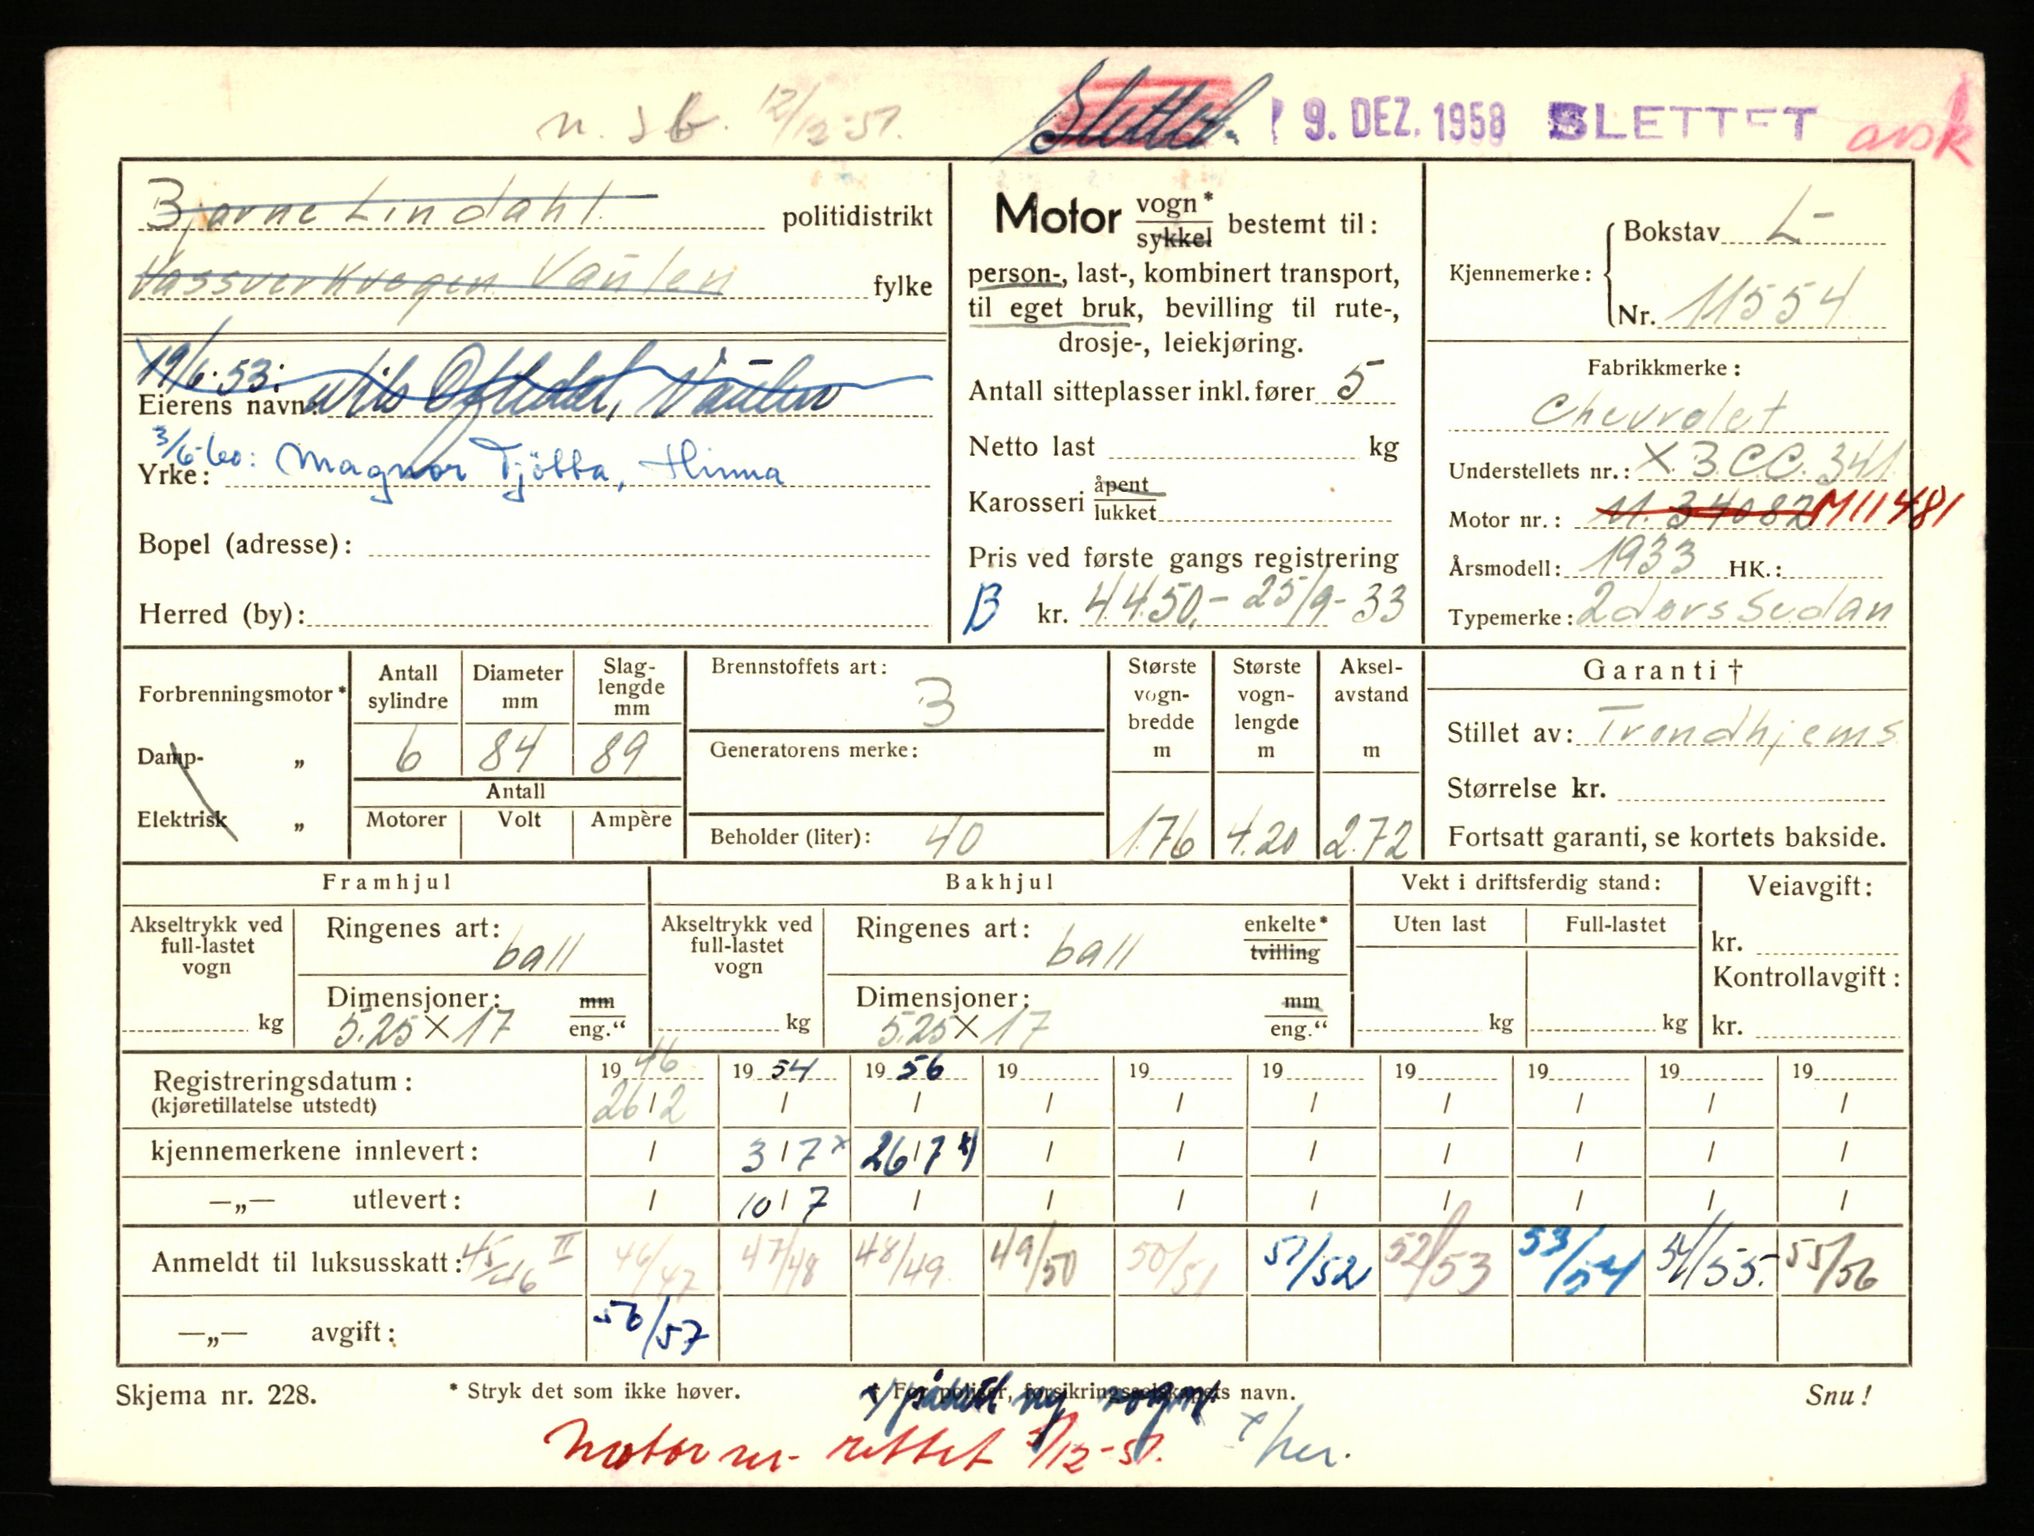 n. s b. 12/12-51.
Slettet. 9. DEZ. 1958 SLETTET avsk
Bjarne Lindahl politidistrikt
Vassverkvegen Vaulen fylke
19/6.53: Nils Oftedal, Vaulen
Eierens navn:
3/6-60: Magnor Tjötta, Hinna
Yrke:
Bopel (adresse):
Herred (by):
Motor vogn* sykkel bestemt til:
person-, last-, kombinert transport,
til eget bruk, bevilling til rute-,
drosje-, leiekjøring.
Antall sitteplasser inkl. fører 5
Netto last kg
Karosseri åpent lukket
Pris ved første gangs registrering
B kr. 4450,- 25/9-33
Kjennemerke: Bokstav L-
Nr. 11554
Fabrikkmerke:
Chevrolet
Understellets nr.: X.3.CC.341
Motor nr.: M. 34082 M11481
Årsmodell: 1933 HK.:
Typemerke: 2dørs Sedan
Forbrenningsmotor*
Damp- „
Elektrisk „
Antall sylindre
Diameter mm
Slag-lengde mm
6 84 89
Antall
Motorer Volt Ampère
Brennstoffets art: B
Generatorens merke:
Beholder (liter): 40
Største vogn-bredde m
Største vogn-lengde m
Aksel-avstand m
1.76 4.20 2.72
Garanti †
Stillet av: Trondhjems
Størrelse kr.
Fortsatt garanti, se kortets bakside.
Framhjul
Akseltrykk ved full-lastet vogn kg
Ringenes art: ball
Dimensjoner: mm
5.25 x 17 eng.“
Bakhjul
Akseltrykk ved full-lastet vogn kg
Ringenes art: ball enkelte* tvilling
Dimensjoner: mm
5.25 x 17 eng.“
Vekt i driftsferdig stand:
Uten last Full-lastet
kg kg
Veiavgift:
kr.
Kontrollavgift:
kr.
Registreringsdatum: 19 46 19 54 19 56 19 19 19 19 19 19 19
(kjøretillatelse utstedt) 26 / 2 / / / / / / / / /
kjennemerkene innlevert: / 3 / 7 x 26 / 7 x) / / / / / / /
—„— utlevert: / 10 / 7 / / / / / / / /
Anmeldt til luksusskatt: 45/46 II 46/47 47/48 48/49 49/50 50/51 51/52 52/53 53/54 54/55. 55/56
—„— avgift: 56/57
Skjema nr. 228. * Stryk det som ikke høver. † For poliser, forsikringsselskapets navn. Snu!
x) påsatt ny vogn.
Motor nr. rettet 5/12-51. x her.